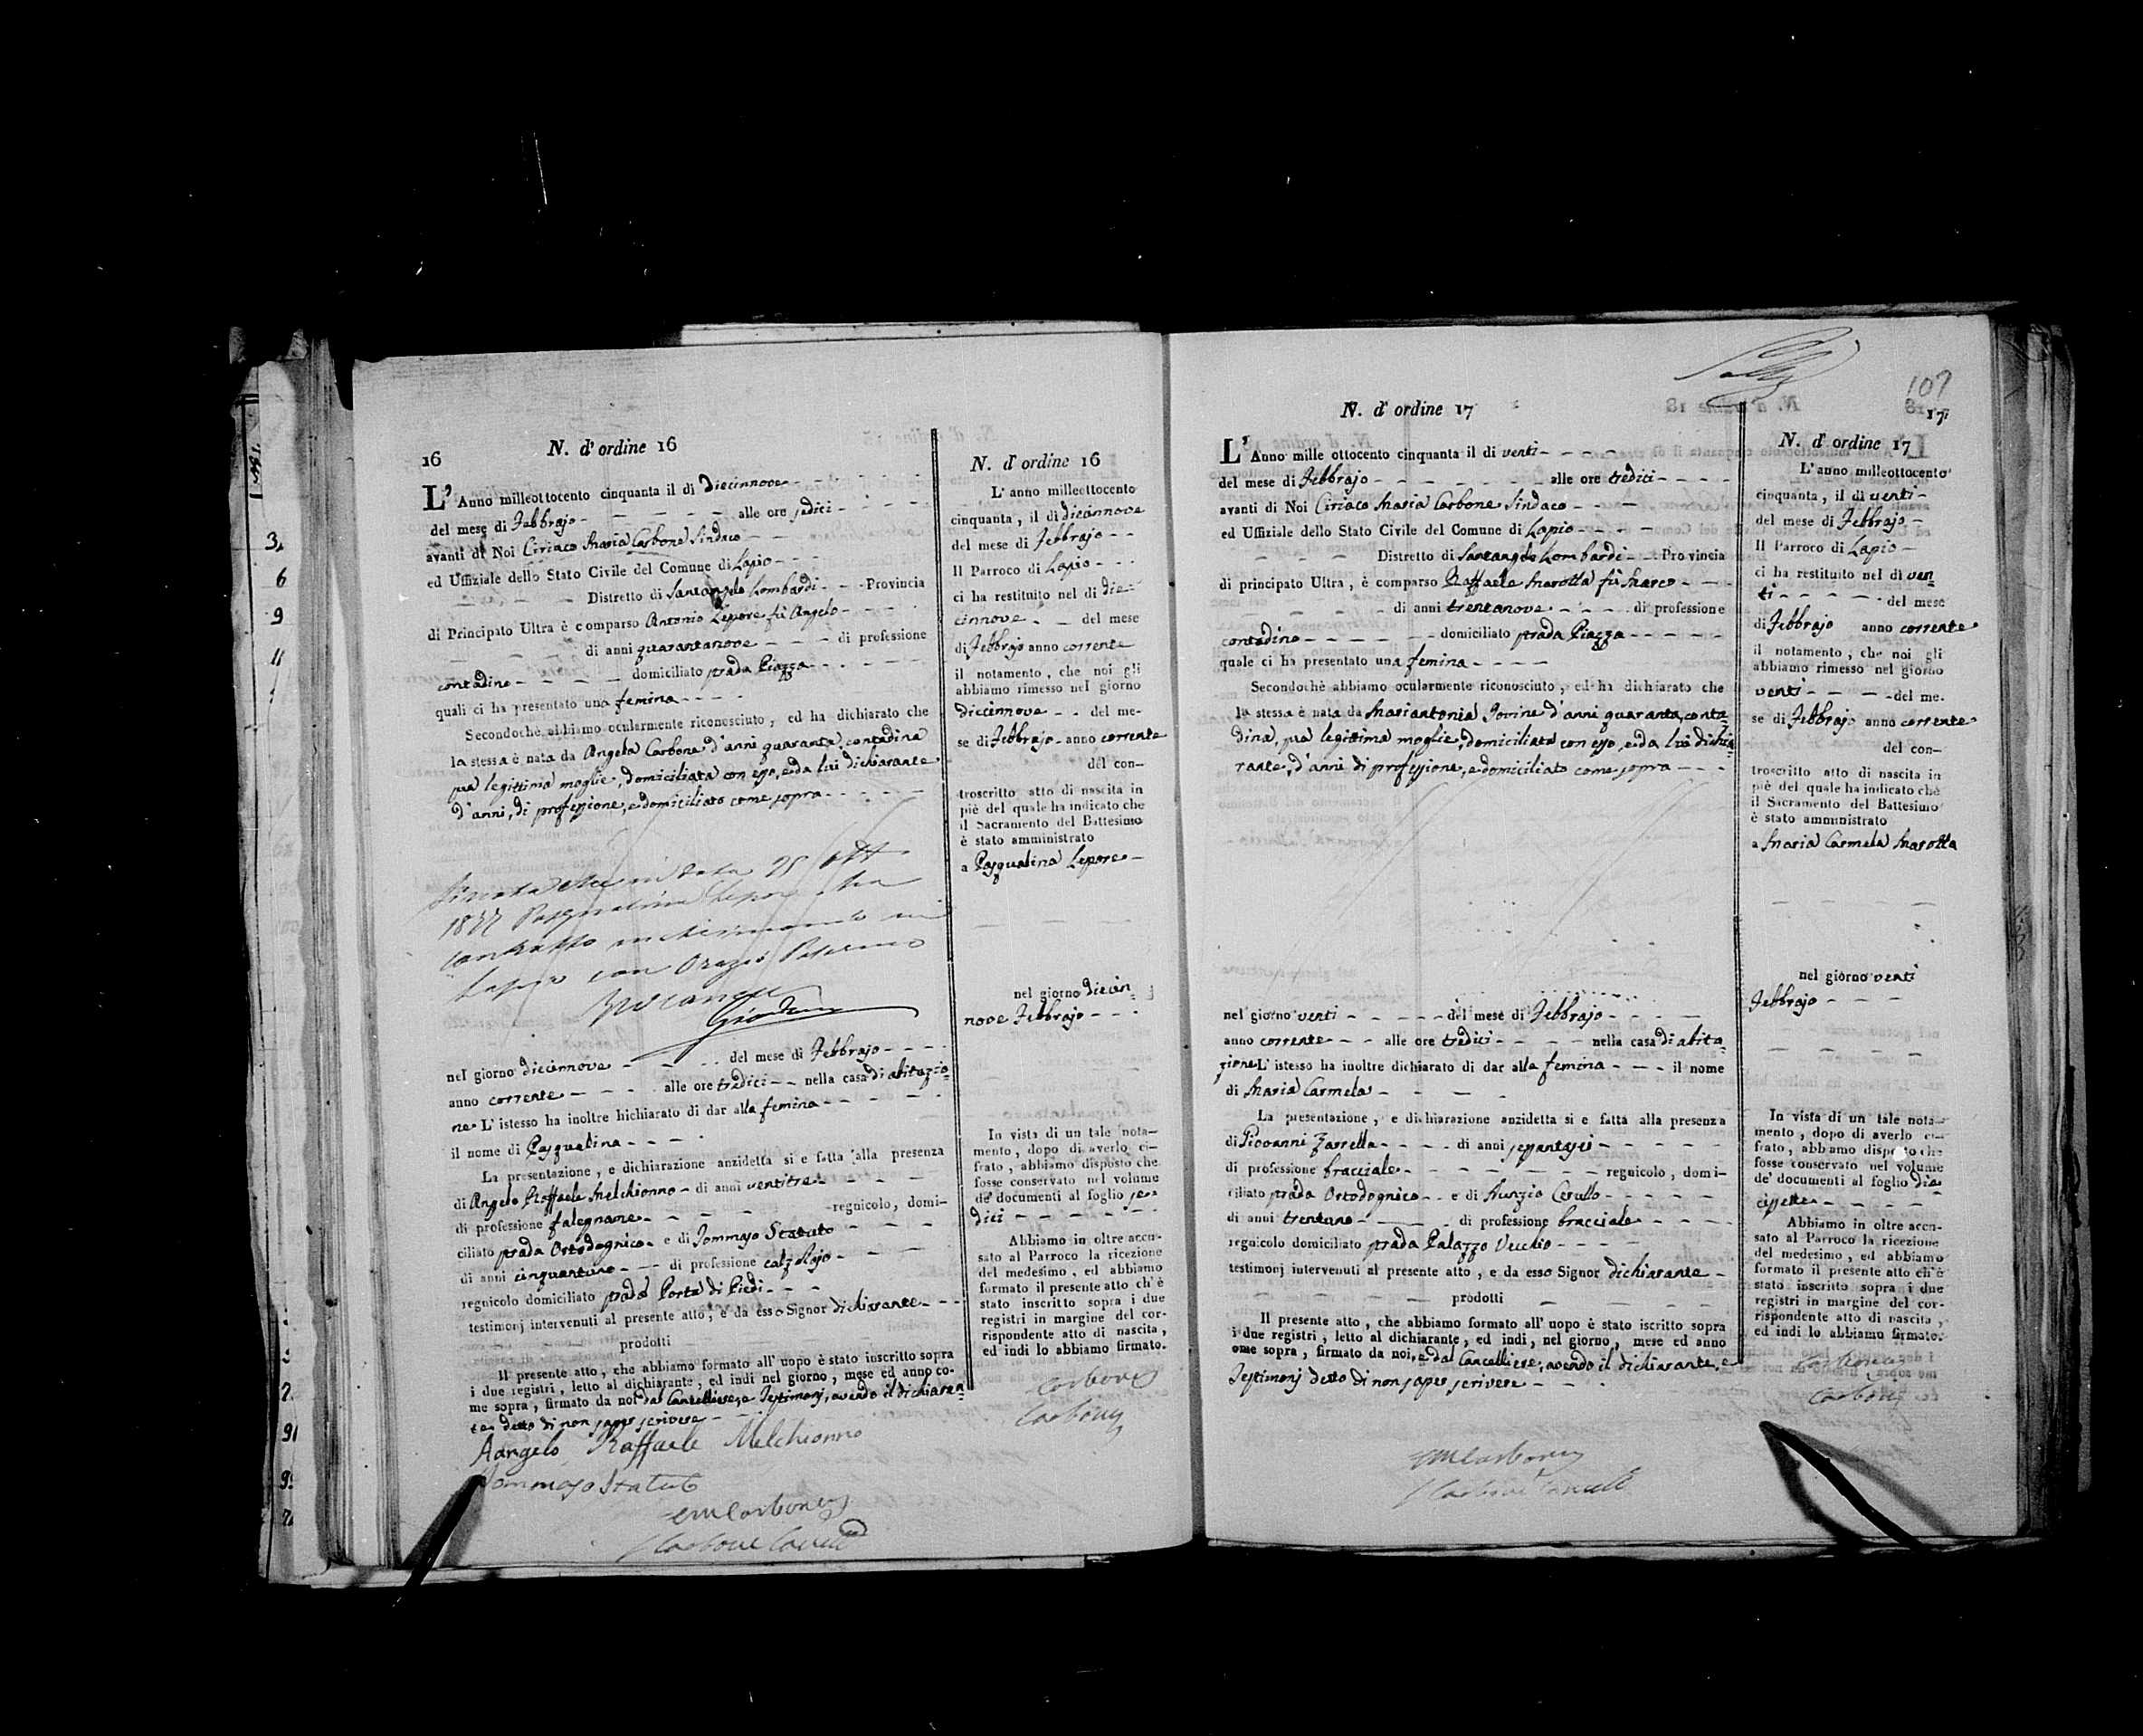 16
N. d' ordine 16
L' Anno milleottocento cinquanta il dì Diecinnove
del mese di Febbrajo alle ore sedici
avanti di Noi Ciriaco Maria Carbone Sindaco
ed Uffiziale dello Stato Civile del Comune di Lapio
Distretto di Santangelo Lombardi Provincia
di Principato Ultra è comparso Antonio Lepore fù Angelo
di anni quarantanove di professione
contadino domiciliato strada Piazza
quali ci ha presentato una femina
Secondochè abbiamo ocularmente riconosciuto, ed ha dichiarato che
la stessa è nata da Angela Carbone d'anni quaranta, contadina
sua legittima moglie, domiciliata con esso, e da lui dichiarante
d'anni, di professione, e domiciliato come sopra
1877 Pasqualina Lepore ha
contratto matrimonio in
Lapio con Orazio
nel giorno diecinnove del mese di Febbrajo
anno corrente alle ore tredici nella casa di abitazio=
ne L' istesso ha inoltre hichiarato di dar alla femina
il nome di Pasqualina
La presentazione, e dichiarazione anzidetta si e fatta alla presenza
di Angelo Raffaele Melchionno di anni ventitre
di professione falegname regnicolo, domi-
ciliato strada Ortodognico e di Tommaso Statuto
di anni cinquantuno di professione calzolajo
regnicolo domiciliato strada Porta di Piedi
testimonj intervenuti al presente atto, e da esso Signor dichiarante
prodotti
Il presente atto, che abbiamo formato all' uopo è stato inscritto sopra
i due registri, letto al dichiarante, ed indi nel giorno, mese ed anno co-
me sopra, firmato da noi dal Cancelliere, e Testimonj, avendo il dichiaran=
te detto di non saper scrivere
Aangelo Raffaele Melchionno
Tommaso Statuto
CMCarbone
Carbone Cancell
N. d' ordine 16
L' anno milleottocento
cinquanta, il dì diecinnove
del mese di Febbrajo
Il Parroco di Lapio
ci ha restituito nel dì die=
cinnove del mese
di Febbrajo anno corrente
il notamento, che noi gli
abbiamo rimesso nel giorno
Diecinnove del me-
se di Febbrajo anno corrente
del con-
troscritto atto di nascita in
piè del quale ha indicato che
il Sacramento del Battesimo
è stato amministrato
a Pasqualina Lepore
nel giorno Diecin=
nove Febbrajo
In vista di un tale nota-
mento, dopo di averlo ci-
frato, abbiamo disposto che
fosse conservato nel volume
de' documenti al foglio se=
dici
Abbiamo in oltre accu-
sato al Parroco la ricezione
del medesimo, ed abbiamo
formato il presente atto ch' è
stato inscritto sopra i due
registri in margine del cor-
rispondente atto di nascita,
ed indi lo abbiamo firmato.
Carbone
Carbone
107
17
N. d' ordine 17
L' Anno mille ottocento cinquanta il di venti
del mese di Febbrajo alle ore tredici
avanti di Noi Ciriaco Maria Carbone Sindaco
ed Uffiziale dello Stato Civile del Comune di Lapio
Distretto di Santangelo Lombardi Provincia
di principato Ultra, è comparso Raffaele Marotta fù Marco
di anni trentanove di professione
contadino domiciliato strada Piazza
quale ci ha presentato una femina
Secondochè abbiamo ocularmente riconosciuto, ed ha dichiarato che
la stessa è nata da Mariantonia Iorine d'anni quaranta, conta=
dina, sua legittima moglie, domiciliata con esso, e da lui dichia=
rante, d'anni di professione, e domiciliato come sopra
nel giorno venti del mese di Febbrajo
anno corrente alle ore tredici nella casa di abita=
zione L' istesso ha inoltre dichiarato di dar alla femina il nome
di Maria Carmela
La presentazione, e dichiarazione anzidetta si e fatta alla presenza
di Giovanni Zarrella di anni sessantasei
di professione bracciale regnicolo, domi-
ciliato strada Ortodognico e di Nunzio Cerullo
di anni trentuno di professione bracciale
regnicolo domiciliato strada Palazzo Vecchio
testimonj intervenuti al presente atto, e da esso Signor dichiarante
prodotti
Il presente atto, che abbiamo formato all' uopo è stato iscritto sopra
i due registri, letto al dichiarante, ed indi, nel giorno, mese ed anno
ome sopra, firmato da noi, e dal Cancelliere, avendo il dichiarante, e
Testimonj detto di non saper scrivere
CMCarbone
Carbone Cancell
N. d' ordine 17
L' anno milleottocento
cinquanta, il dì venti
del mese di Febbrajo
Il Parroco di Lapio
ci ha restituito nel dì ven=
ti del mese
di Febbrajo anno corrente
il notamento, che noi gli
abbiamo rimesso nel giorno
venti del me-
se di Febbrajo anno corrente
del con-
troscritto atto di nascita in
piè del quale ha indicato chè
il Sacramento del Battesimo
è stato amministrato
a Maria Carmela Marotta
nel giorno venti
Febbrajo
In vista di un tale nota-
mento, dopo di averlo ci-
frato, abbiamo disposto che
fosse conservato nel volume
de' documenti al foglio die=
cissette
Abbiamo in oltre accu-
sato al Parroco la ricezione
del medesimo, ed abbiamo
formato il presente atto ch' è
stato inscritto sopra i due
registri in margine del cor-
rispondente atto di nascita,
ed indi lo abbiamo firmato.
Carbone
Carbone